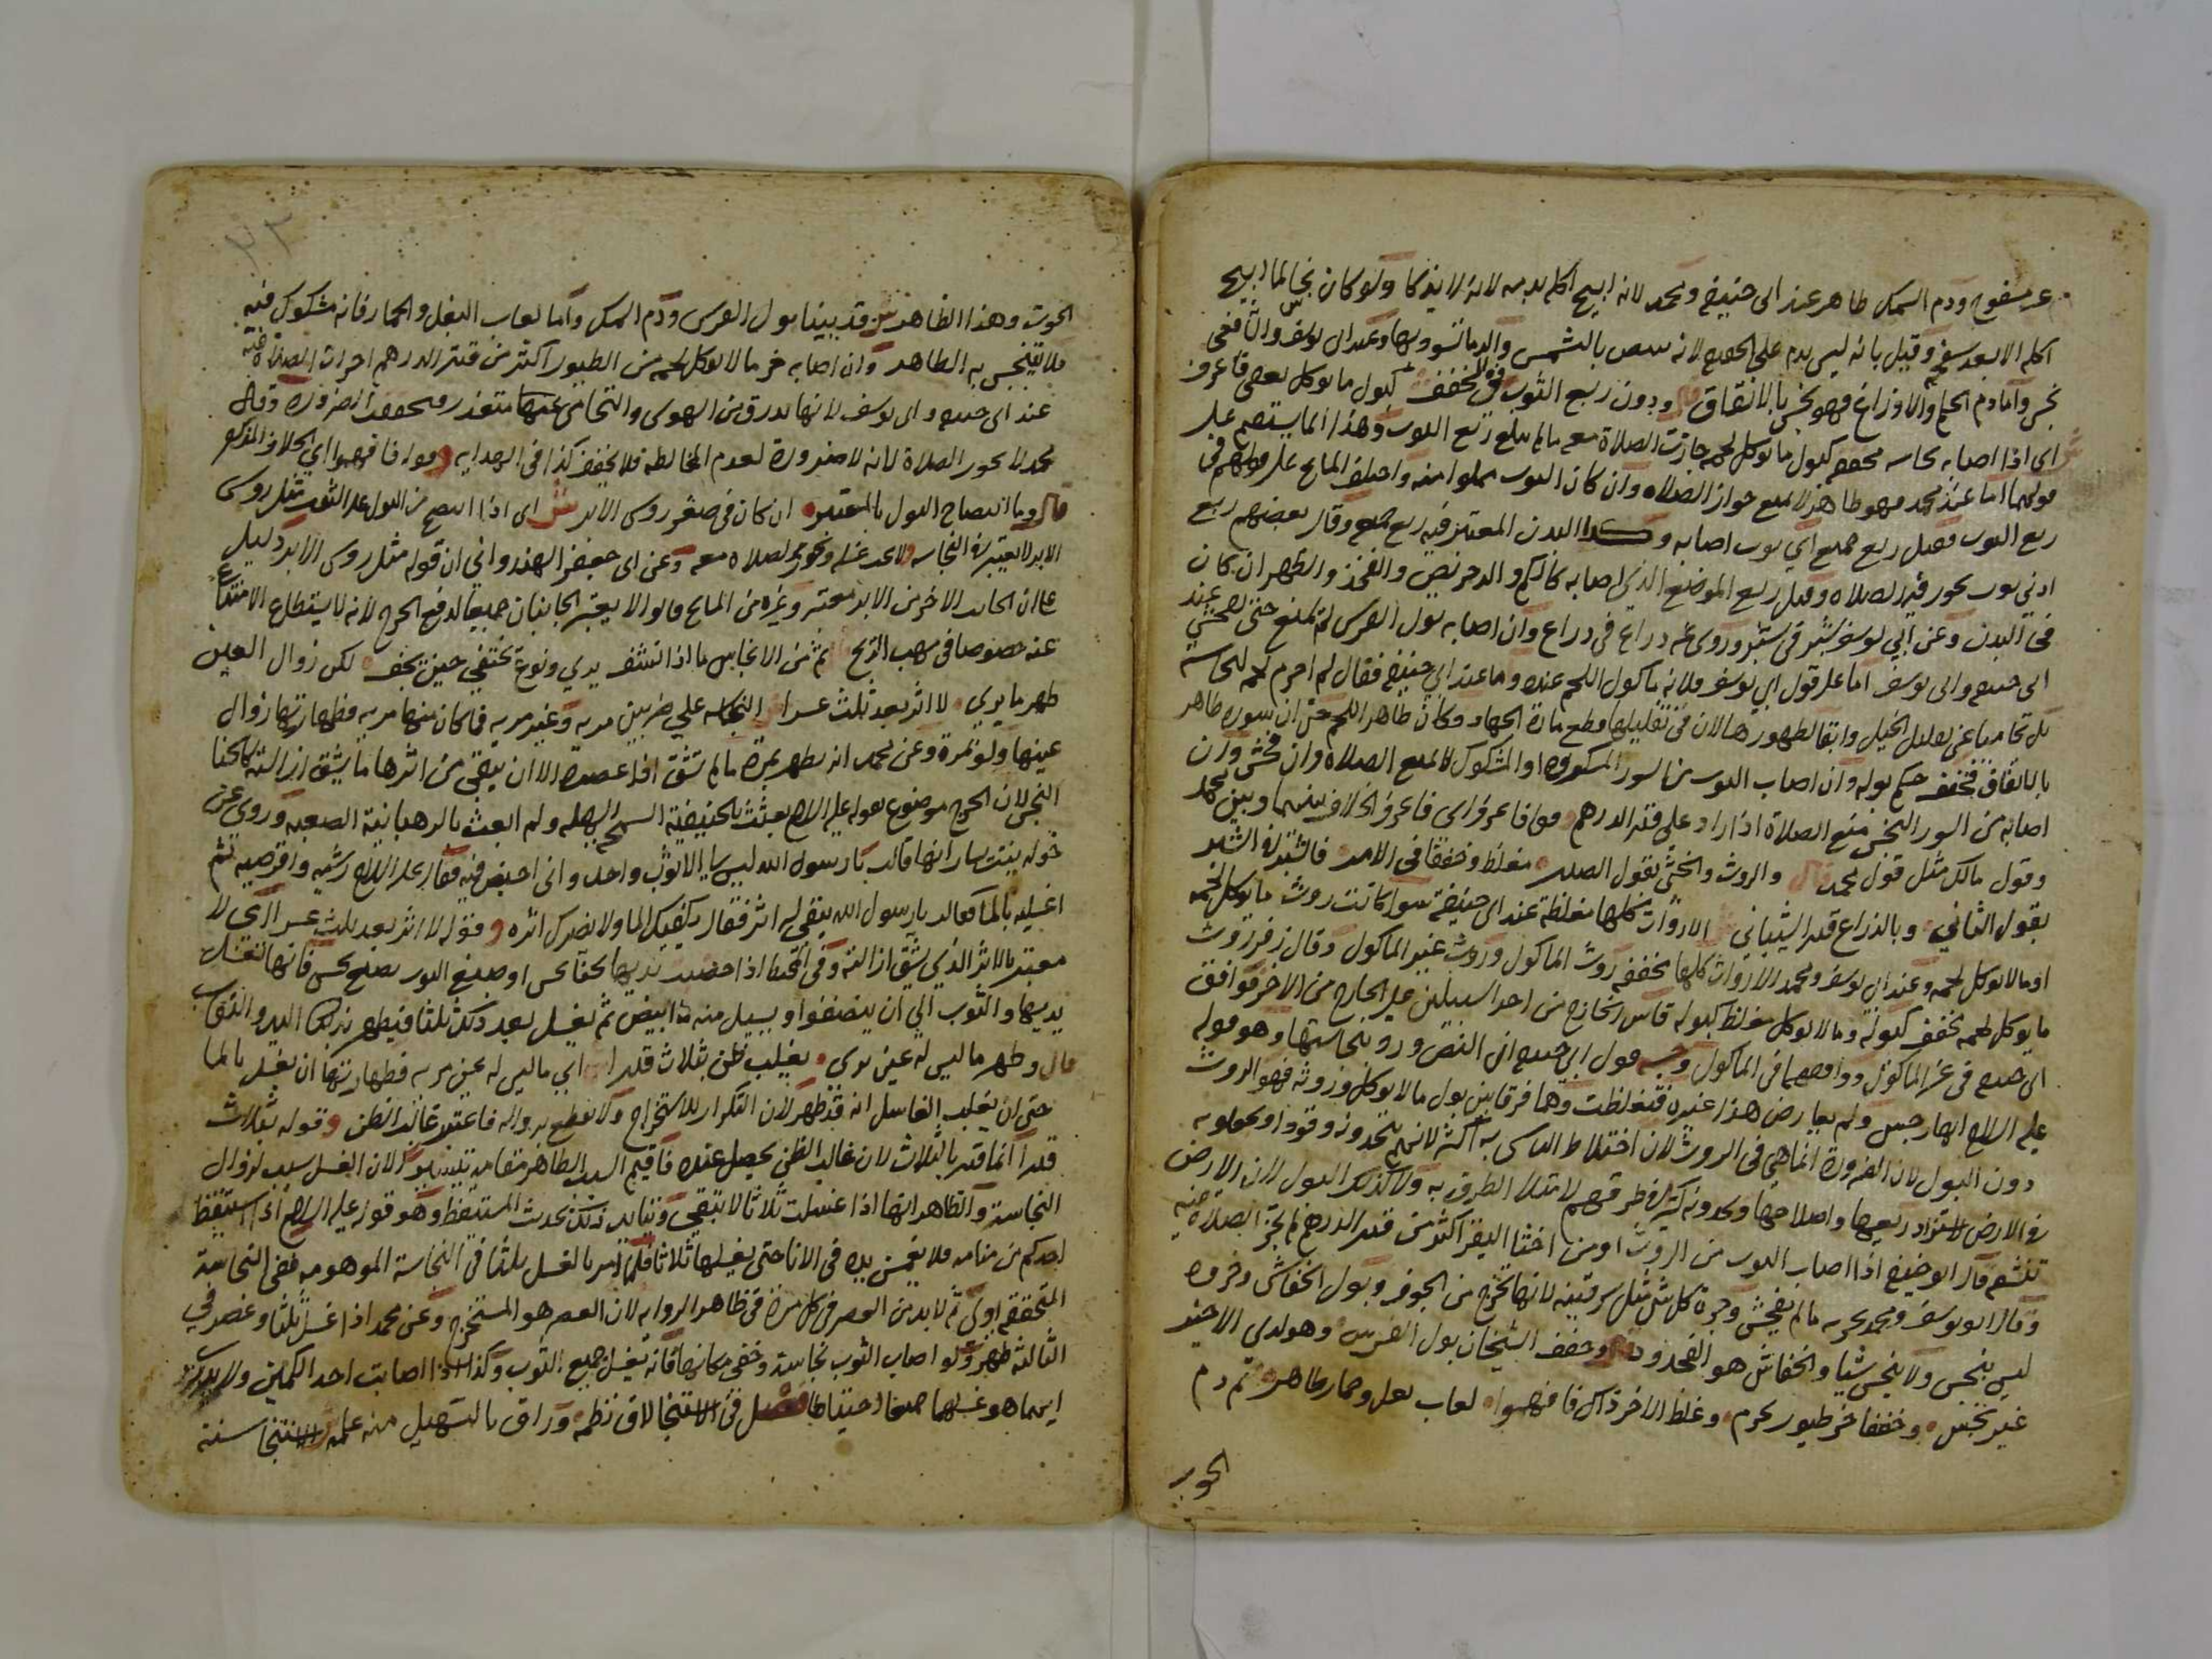 غير مسفوح ودم السمك طاهر عند ابى حنيفة ومحمد لانه ابيح اكله بدمه لانه لا يذكا ولو كان نجسا لما ابيح
اكله الا بعد سفحه وقيل بانه ليس بدم على الحقيقة لانه يبيض بالشمس والدما تسود بها وعند ابى يوسف والشافعى
نجس واما دم الحلم والاوزاغ فهو نجس بالاتفاق قال ودون ربع الثوب فى المخفف كبول ما يوكل بعض قد عرف
اى اذا اصابه نجاسة مخففة كبول ما يوكل لحمه جازت الصلاة معه ما لم يبلغ ربع الثوب وهذا انما يستقيم على
قولهما اما عند محمد فهو طاهر لا يمنع جواز الصلاة وان كان الثوب مملوا منه واختلف المشايخ على قولهم فى
ربع الثوب فقيل ربع جميع اى ثوب اصابه وكذا البدن المعتبر فيه ربع جميعه وقال بعضهم ربع
ادنى ثوب يجوز فيه الصلاة وقيل ربع الموضع الذى اصابه كالكم والدخريص والفخذ والظهر ان كان
فى البدن وعن ابى يوسف شبر فى شبر وروى عنه ذراع فى ذراع وان اصابه بول الفرس لم يمنع حتى يفحش عند
ابى حنيفة وابى يوسف اما على قول ابى يوسف فلانه ماكول اللحم عنده وما عند ابى حنيفة فقال لم احرم لحمه لنجاسته
بل تحاميا عن تقليل الخيل وابقا لظهورها لان فى تقليلها قطع مادة الجهاد وكان طاهر اللحم حتى ان سوره طاهر
بالاتفاق فخفف حكم بوله وان اصاب الثوب من السور المكروه او المشكوك لا يمنع الصلاة وان فحش وان
اصابه من السور النجس منع الصلاة اذا زاد على قدر الدرهم قوله فاعرفوا اى فاعرفوا الخلاف بينهما وبين محمد
وقول مالك مثل قول محمد قال والروث والخثى بقول الصدر مغلظ وخففا فى الامر فالشبر فى الشبر
بقول الثانى وبالذراع قدر الشيبانى الارواث كلها مغلظة عند ابى حنيفة سوا كانت روث ما يوكل لحمه
او ما لا يوكل لحمه وعند ابى يوسف ومحمد الارواث كلها مخففة روث الماكول وروث غير الماكول وقال زفر روث
ما يوكل لحمه مخفف كبوله وما لا يوكل مغلظ كبوله قاس الخارج من احد السبيلين على الخارج من الاخر فوافق
ابى حنيفة فى غير الماكول ووافقهما فى الماكول وجه قول ابى حنيفة ان النص ورد بنجاستها وهو قوله
عليه السلام انها رجس ولم يعارض هذا غيره فتغلظت وهما فرقا بين بول ما لا يوكل وروثه فهو الروث
دون البول لان الضرورة انما هى فى الروث لان اختلاط الناس به اكثر لانهم يتخذونه وقودا
فى الارض لتزداد ريعها واصلاحها ويجدونه كثيرا فى طرقهم لامتلا الطرق به ولا كذلك البول لان الارض
تنشفه قال ابو حنيفة اذا اصاب الثوب من الروث او من اخثا البقر اكثر من قدر الدرهم لم تجز الصلاة فيه
وقال ابو يوسف ومحمد يجزيه ما لم يفحش وجرة كل شئ مثل سرقينه لانها تخرج من الجوف وبول الخفاش وخروه
ليس بنجس ولا ينجس شيا والخفاش هو وخفف الشيخان بول الفرس وهو لدى الاخير
غير نجس وخففا خر طيور يحرم وغلظ الاخر ذاك فافهموا لعاب بغل وحمار طاهر ثم دم
الحوت
٢٣
الحوت وهذا الظاهر ش قد بينا بول الفرس ودم السمك واما لعاب البغل والحمار فانه مشكوك فيه
فلا يتنجس به الطاهر وان اصابه خر ما لا يوكل لحمه من الطيور اكثر من قدر الدرهم اجزات الصلاة فيه
عند ابى حنيفة وابى يوسف لانها تذرق من الهوى والتحامى عنها متعذر فتحققت الضرورة وقال
محمد لا تجوز الصلاة لانه لا ضرورة لعدم المخالطة فلا يخفف كذا فى الهداية وقوله فافهموا اى الخلاف المذكور
قال وما انتضاح البول بالمعتبر ان كان فى صغر روس الابر ش اى اذا انتضح من البول على الثوب مثل روس
الابر لا يعتبر فى النجاسة ولا يجب غسله وتجوز الصلاة معه وعن ابى جعفر الهندوانى ان قوله مثل روس الابر دليل
على ان الجانب الاخر من الابر معتبر وغيره من المشايخ قالوا لا يعتبر الجانبان جميعا لدفع الحرج لانه لا يستطاع الامتناع
عنه خصوصا فى مهب الريح ثم من الانجاس ما اذا نشف يرى ونوع يختفى حين يجف لكن زوال العين
طهر ما يرى لا اثر بعد ثلث النجاسة على ضربين مرية وغير مرية فما كان منها مرية فطهارتها زوال
عينها ولو بمرة وعن محمد انه يطهر بمرة ما لم تشق اذا عصره الا ان يبقى من اثرها ما يشق ازالته كالحنا
النجس لان الحرج موضوع بقوله عليه السلام بعثت بالحنيفية السمحة السهلة ولم ابعث بالرهبانية الصعبة وروى عن
خولة بنت يسار انها قالت يا رسول الله ليس لى الا ثوب واحد وانى احيض فيه فقال عليه السلام رشيه واقرصيه ثم
اغسليه بالما فقالت يا رسول الله يبقى له اثر فقال يكفيك الما ولا يضرك اثره وقوله لا اثر بعد ثلث اى لا
معتبر بالاثر الذى يشق ازالته وفى المحيط اذا خضبت يديها بحنا نجس او صبغ الثوب بصبغ نجس فانها تغسل
يديها والثوب الى ان يصفو او يسيل منه ما ابيض ثم يغسل بعد ذلك ثلثا فيطهر بذلك اليد والثوب
قال وطهر ما ليس له عين ترى بغلب ظن بثلاث قدرا اى ما ليس له عين مرية فطهارتها ان يغسل بالما
حتى ان يغلب الغاسل انه قد طهر لان التكرار للاستخراج ولا يقطع بزواله فاعتبر غالب الظن وقوله بثلاث
قدرا انما قدر بالثلاث لان غالب الظن يحصل عنده فاقيم السبب الظاهر مقامه تيسيرا لان الغسل سبب لزوال
النجاسة والظاهر انها اذا غسلت ثلاثا لا تبقى وتتايد ذلك بحديث المستيقظ وهو قوله عليه السلام اذا استيقظ
احدكم من منامه فلا يغمس يده فى الانا حتى يغسلها ثلاثا فلما امر بالغسل ثلثا فى النجاسة الموهومة ففى النجاسة
المتحققة اولى ثم لا بد من العصر فى كل مرة فى ظاهر الرواية لان العصر هو المستخرج وعن محمد اذا غسل ثلثا وعصر فى
الثالثة طهر ولو اصاب الثوب نجاسة وخفى مكانها فانه يغسل جميع الثوب وكذا اذا اصابت احد الكمين ولا يدرى
ايهما هو غسلهما جميعا احتياطا فصل فى الاستنجا لاق نظمه وراق بالتسهيل منه علمه الاستنجا سنة